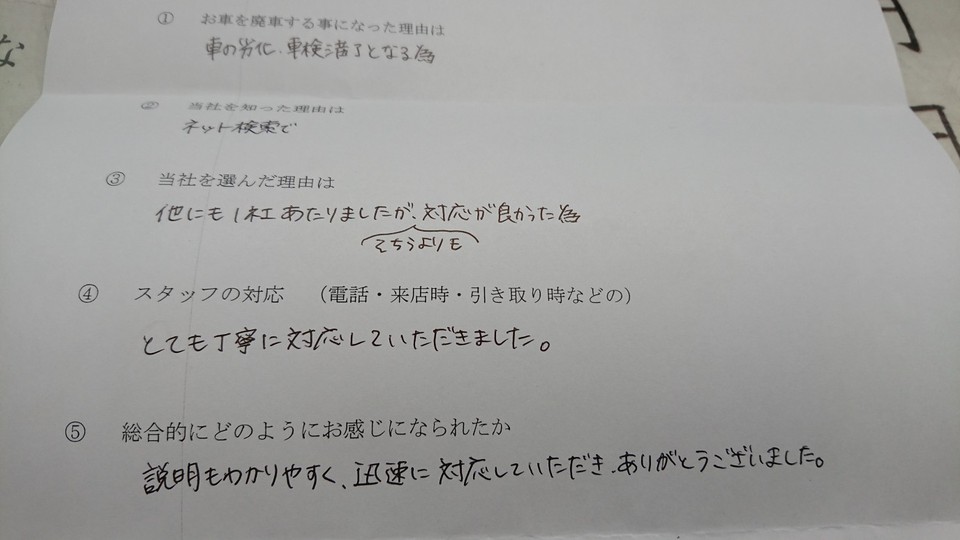 ① お車を廃車する事になった理由は
車の劣化、車検満了となる為
② 当社を知った理由は
ネット検索で
③ 当社を選んだ理由は
他にも1社あたりましたが、対応が良かった為
そちらよりも
④ スタッフの対応 （電話・来店時・引き取り時などの）
とても丁寧に対応していただきました。
⑤ 総合的にどのようにお感じになられたか
説明もわかりやすく、迅速に対応していただき、ありがとうございました。
な
円